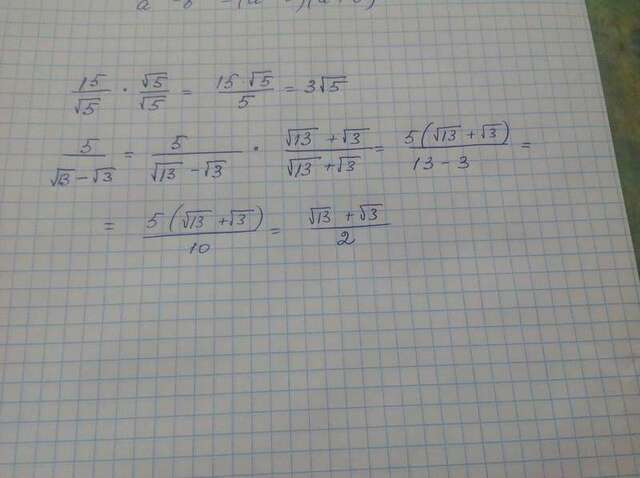 15/√5 · √5/√5 = 15√5/5 = 3√5
5/(√13 − √3) = 5/(√13 − √3) · (√13 + √3)/(√13 + √3) = 5(√13 + √3)/(13 − 3) =
= 5(√13 + √3)/10 = (√13 + √3)/2